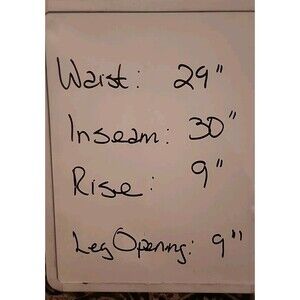 Waist: 29"
Inseam: 30"
Rise: 9"
Leg Opening: 9"